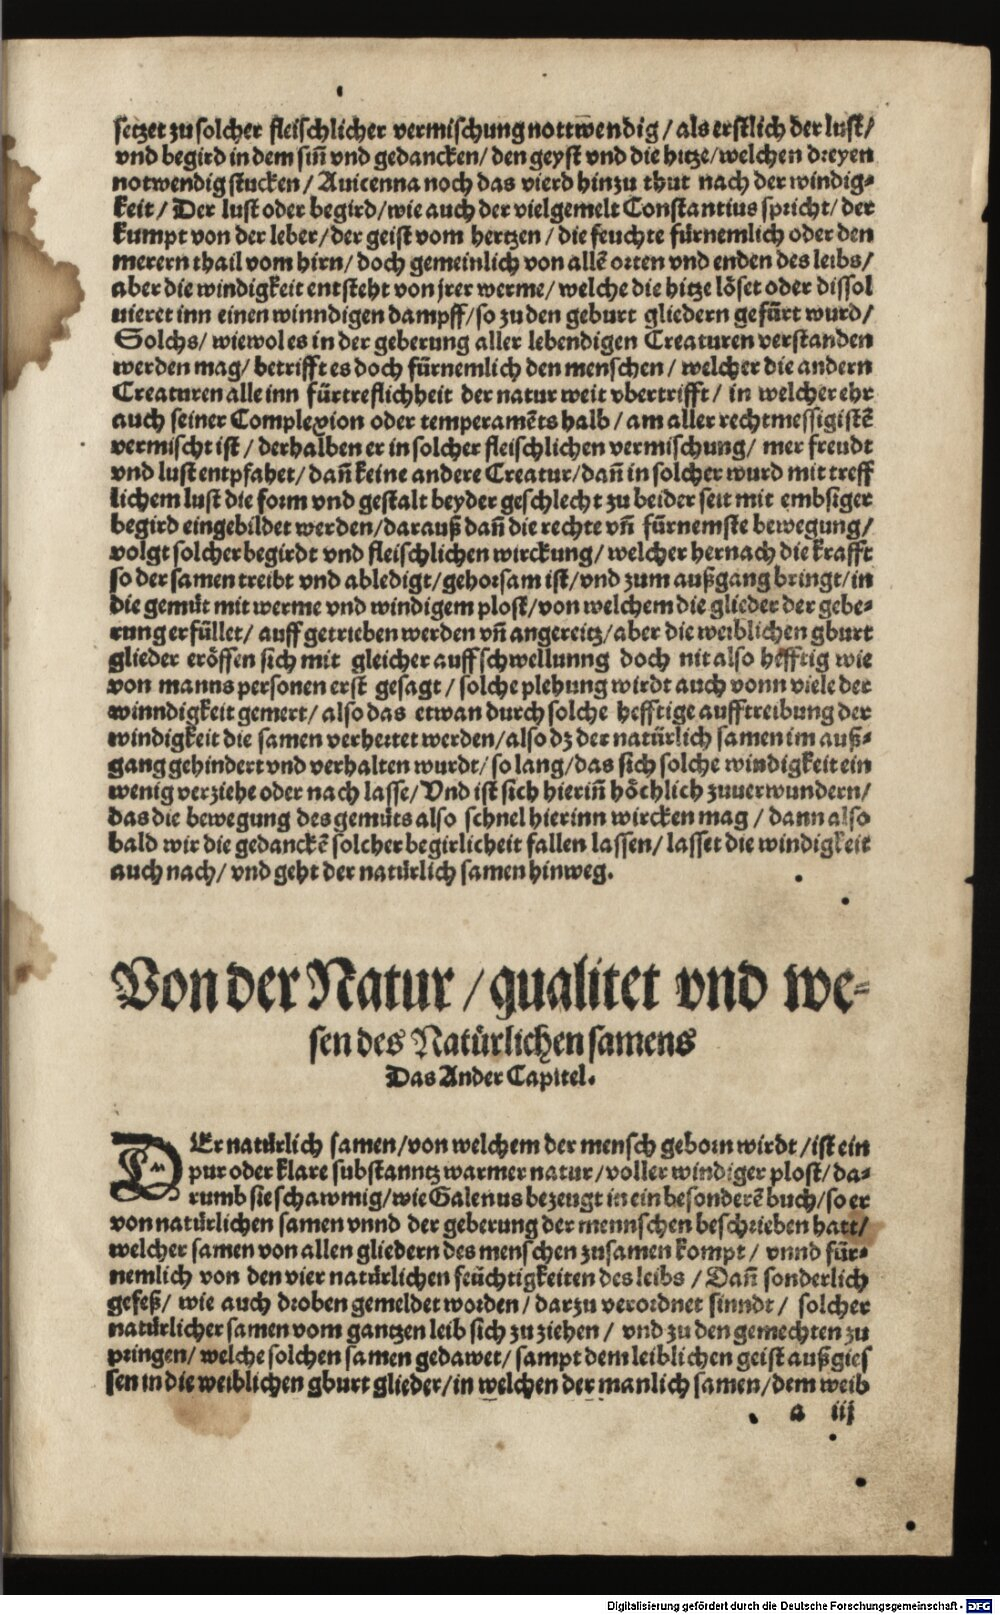 setzet zu solcher fleischlicher vermischung nottwendig / als erstlich der lust /
vnd begird in dem siñ vnd gedancken / den geyst vnd die hitze / welchen dreyen
notwendig stucken / Auicenna noch das vierd hinzu thut nach der windig-
keit / Der lust oder begird / wie auch der vielgemelt Constantius spricht / der
kumpt von der leber / der geist vom hertzen / die feuchte fürnemlich oder den
merern thail vom hirn / doch gemeinlich von allẽ orten vnd enden des leibs /
aber die windigkeit entsteht von jrer werme / welche die hitze löset oder dissol
uieret inn einen winndigen dampff / so zu den geburt gliedern gefürt wurd /
Solchs / wiewol es in der geberung aller lebendigen Creaturen verstanden
werden mag / betrifft es doch fürnemlich den menschen / welcher die andern
Creaturen alle inn fürtreflichheit der natur weit vbertrifft / in welcher ehr
auch seiner Complexion oder temperamẽts halb / am aller rechtmessigistẽ
vermischt ist / derhalben er in solcher fleischlichen vermischung / mer freudt
vnd lust entpfahet / dañ keine andere Creatur / dañ in solcher wurd mit treff
lichem lust die form vnd gestalt beyder geschlecht zu beider seit mit embsiger
begird eingebildet werden / darauß dañ die rechte vñ fürnemste bewegung /
volgt solcher begirdt vnd fleischlichen wirckung / welcher hernach die krafft
so der samen treibt vnd abledigt / gehorsam ist / vnd zum außgang bringt / in
die gemüt mit werme vnd windigem plost / von welchem die glieder der gebe-
rung erfüllet / auff getrieben werden vñ angereitz / aber die weiblichen gburt
glieder eröffen sich mit gleicher auffschwellunng doch nit also hefftig wie
von manns personen erst gesagt / solche plehung wirdt auch vonn viele der
winndigkeit gemert / also das etwan durch solche hefftige aufftreibung der
windigkeit die samen verhertet werden / also dz der natürlich samen im auß-
gang gehindert vnd verhalten wurdt / so lang / das sich solche windigkeit ein
wenig verziehe oder nach lasse / Vnd ist sich hieriñ höchlich zuuerwundern /
das die bewegung des gemüts also schnel hierinn wircken mag / dann also
bald wir die gedanckẽ solcher begirlicheit fallen lassen / lasset die windigkeit
auch nach / vnd geht der natürlich samen hinweg.
Von der Natur / qualitet vnd we-
sen des Natürlichen samens
Das Ander Capitel.
DEr natürlich samen / von welchem der mensch geborn wirdt / ist ein
pur oder klare substanntz warmer natur / voller windiger plost / da-
rumb sie schawmig / wie Galenus bezeugt in ein besonderẽ buch / so er
von natürlichen samen vnnd der geberung der mennschen beschrieben hatt /
welcher samen von allen gliedern des menschen zusamen kompt / vnnd für-
nemlich von den vier natürlichen feüchtigkeiten des leibs / Dañ sonderlich
gefeß / wie auch droben gemeldet worden / darzu verordnet sinndt / solcher
natürlicher samen vom gantzen leib sich zu ziehen / vnd zu den gemechten zu
pringen / welche solchen samen gedawet / sampt dem leiblichen geist außgies
sen in die weiblichen gburt glieder / in welchen der manlich samen / dem weib
a iij
Digitalisierung gefördert durch die Deutsche Forschungsgemeinschaft - DFG